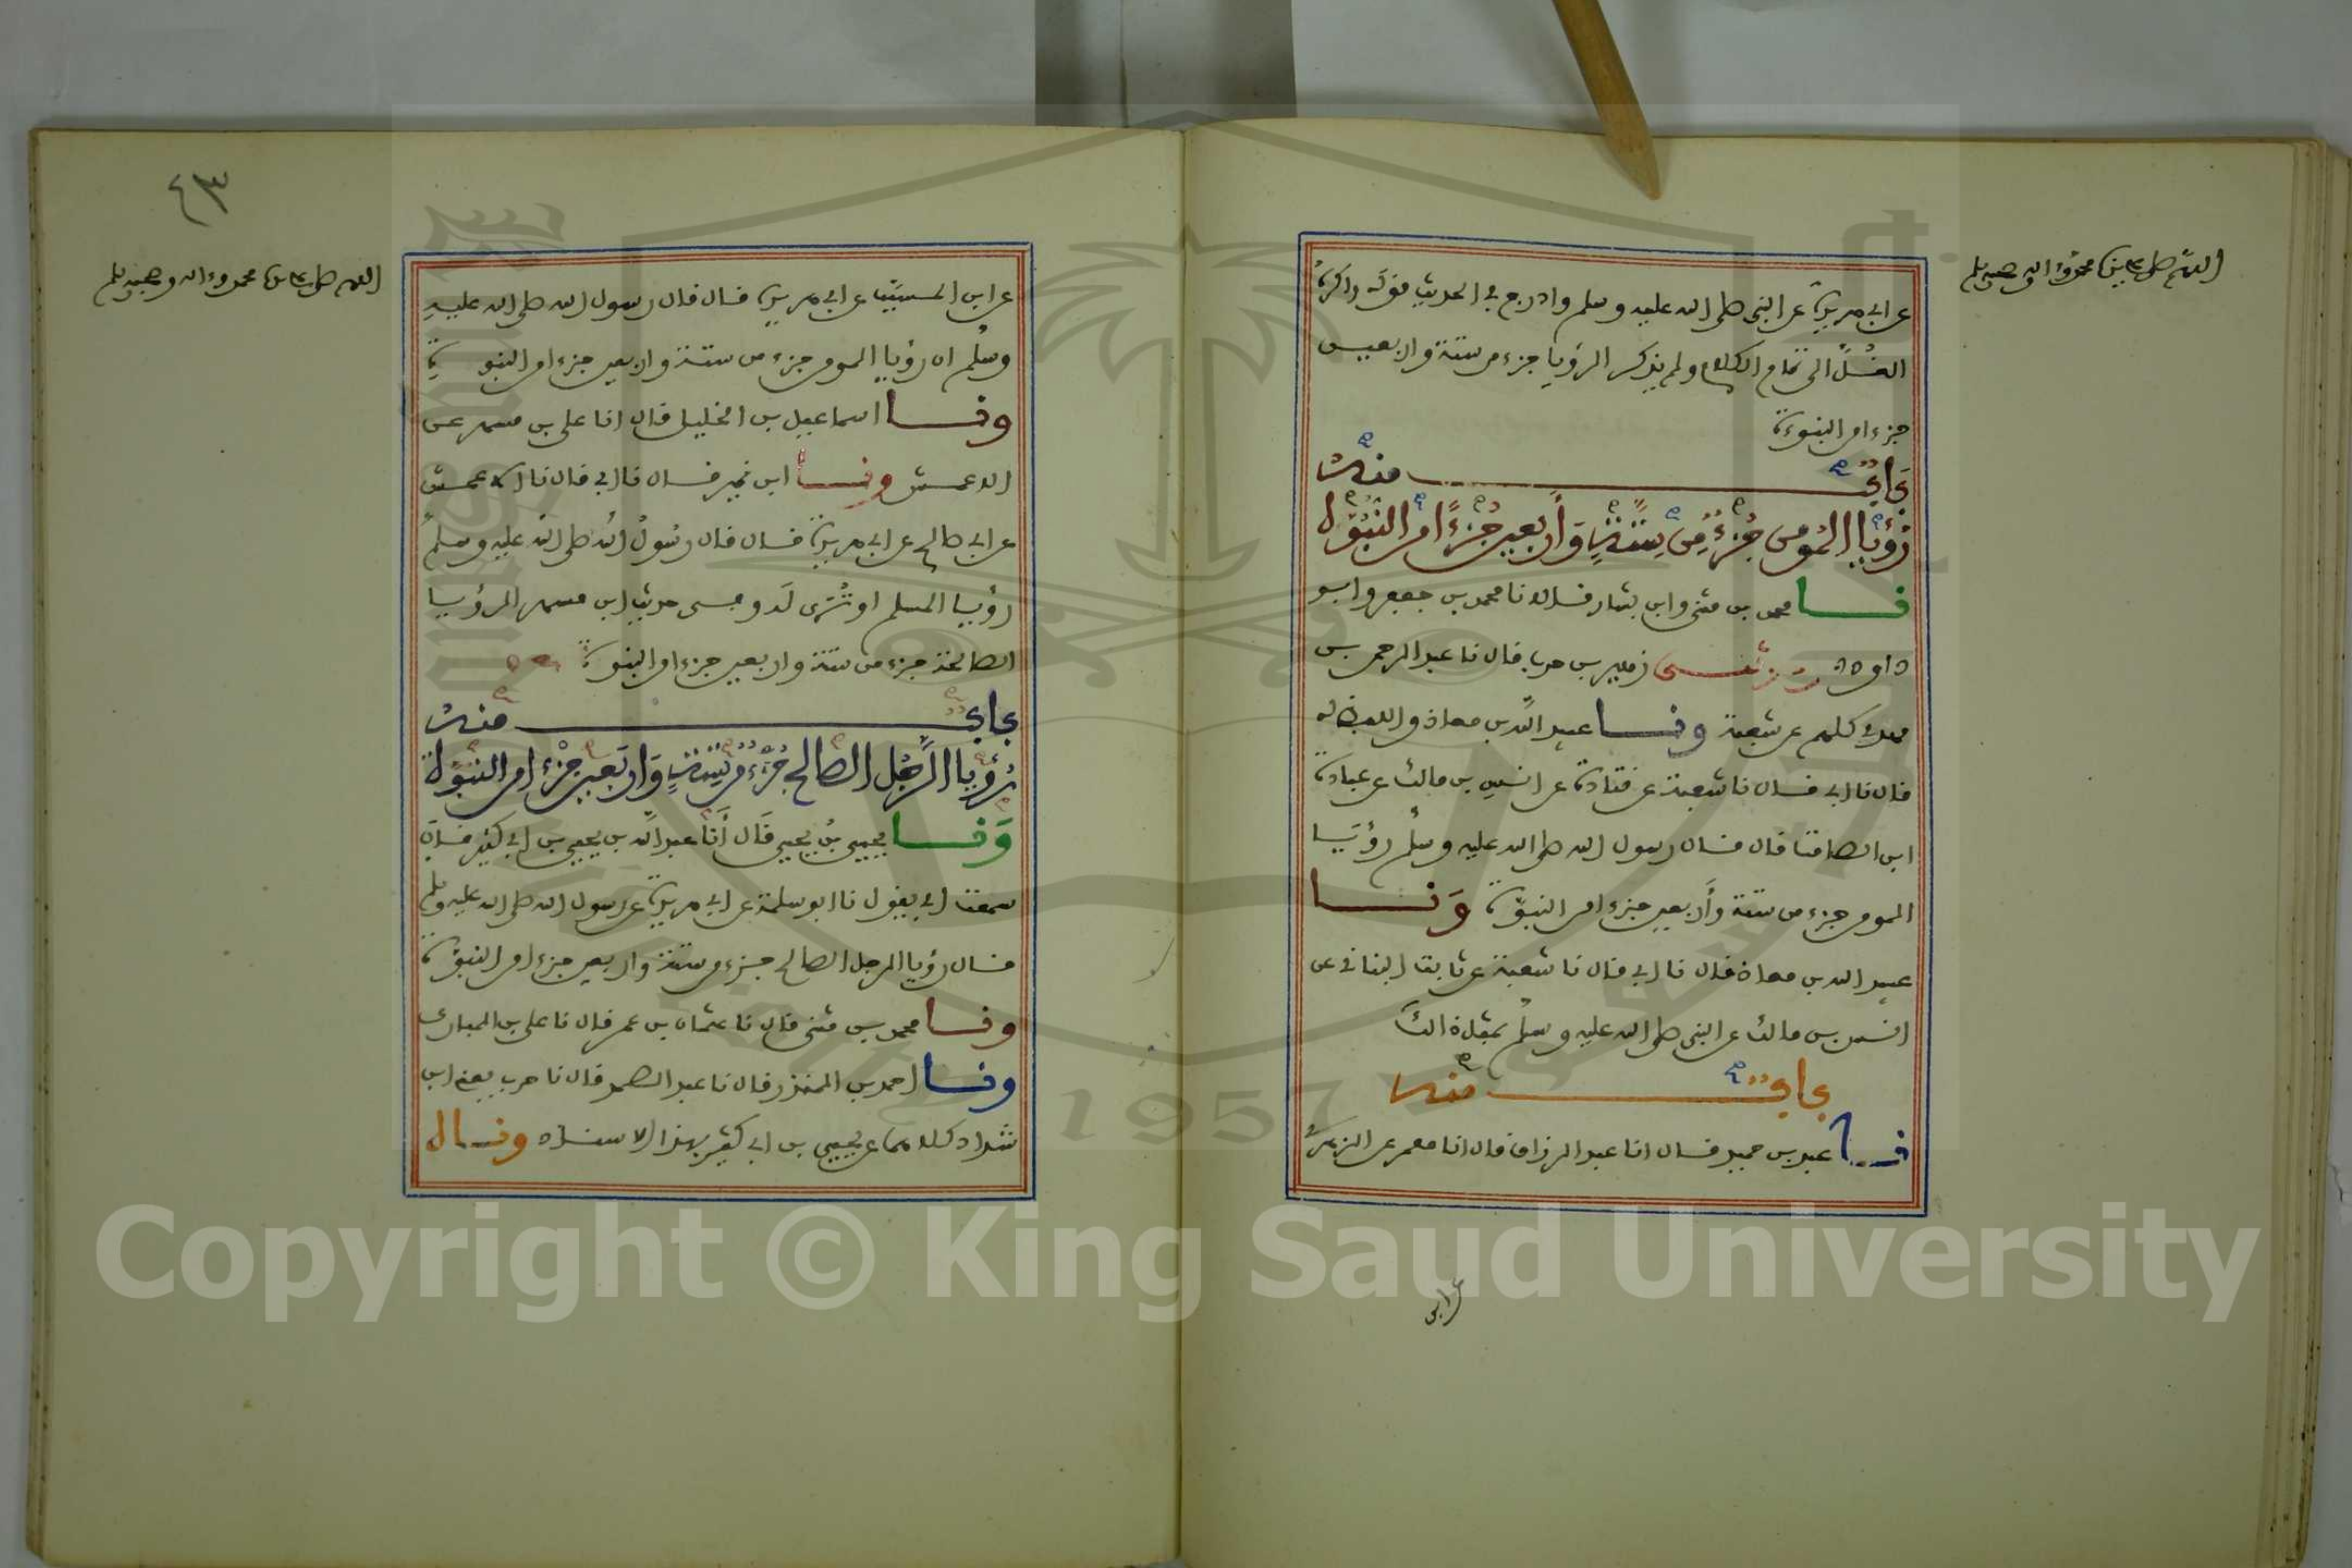 اللهم صل على سيدنا محمد وءاله وصحبه وسلم
عن ابي هريرة عن النبي صلى الله عليه وسلم وادرج في الحديث قوله واكره
الغل الى تمام الكلام ولم يذكر الرؤيا جزء من ستة واربعين
جزءا من النبوءة
باب منه
رؤيا المومن جزء من ستة وأربعين جزءا من النبوة
نا محمد بن مثنى وابن بشار قالا نا محمد بن جعفر وابو
داود وحدثني زهير بن حرب قال نا عبد الرحمن بن
مهدي كلهم عن شعبة ونا عبيد الله بن معاذ واللفظ له
قال نا ابي قال نا شعبة عن قتادة عن انس بن مالك عن عبادة
ابن الصامت قال قال رسول الله صلى الله عليه وسلم رؤيا
المومن جزء من ستة وأربعين جزءا من النبوة ونا
عبيد الله بن معاذ قال نا ابي قال نا شعبة عن ثابت البناني عن
انس بن مالك عن النبي صلى الله عليه وسلم بمثل ذلك
باب منه
نا عبد بن حميد قال انا عبد الرزاق قال انا معمر عن الزهري
عن ابن
٤٣
اللهم صل على سيدنا محمد وءاله وصحبه وسلم
عن ابن المسيب عن ابي هريرة قال قال رسول الله صلى الله عليه
وسلم ان رؤيا المومن جزء من ستة واربعين جزءا من النبوة
ونا اسماعيل بن الخليل قال انا علي بن مسهر عن
الاعمش ونا ابن نمير قال نا ابي قال نا الاعمش
عن ابي صالح عن ابي هريرة قال قال رسول الله صلى الله عليه وسلم
رؤيا المسلم او ترى له وفي حديث ابن مسهر الرؤيا
الصالحة جزء من ستة واربعين جزءا من النبوة
باب منه
رؤيا الرجل الصالح جزء من ستة واربعين جزءا من النبوة
ونا يحيى بن يحيى قال أنا عبد الله بن يحيى بن ابي كثير قال
سمعت ابي يقول نا ابو سلمة عن ابي هريرة عن رسول الله صلى الله عليه وسلم
قال رؤيا الرجل الصالح جزء من ستة واربعين جزءا من النبوة
ونا محمد بن مثنى قال نا عثمان بن عمر قال نا علي بن المبارك
ونا احمد بن المنذر قال نا عبد الصمد قال نا حرب يعني ابن
شداد كلاهما عن يحيى بن ابي كثير بهذا الاسناد وقال
1957
Copyright © King Saud University